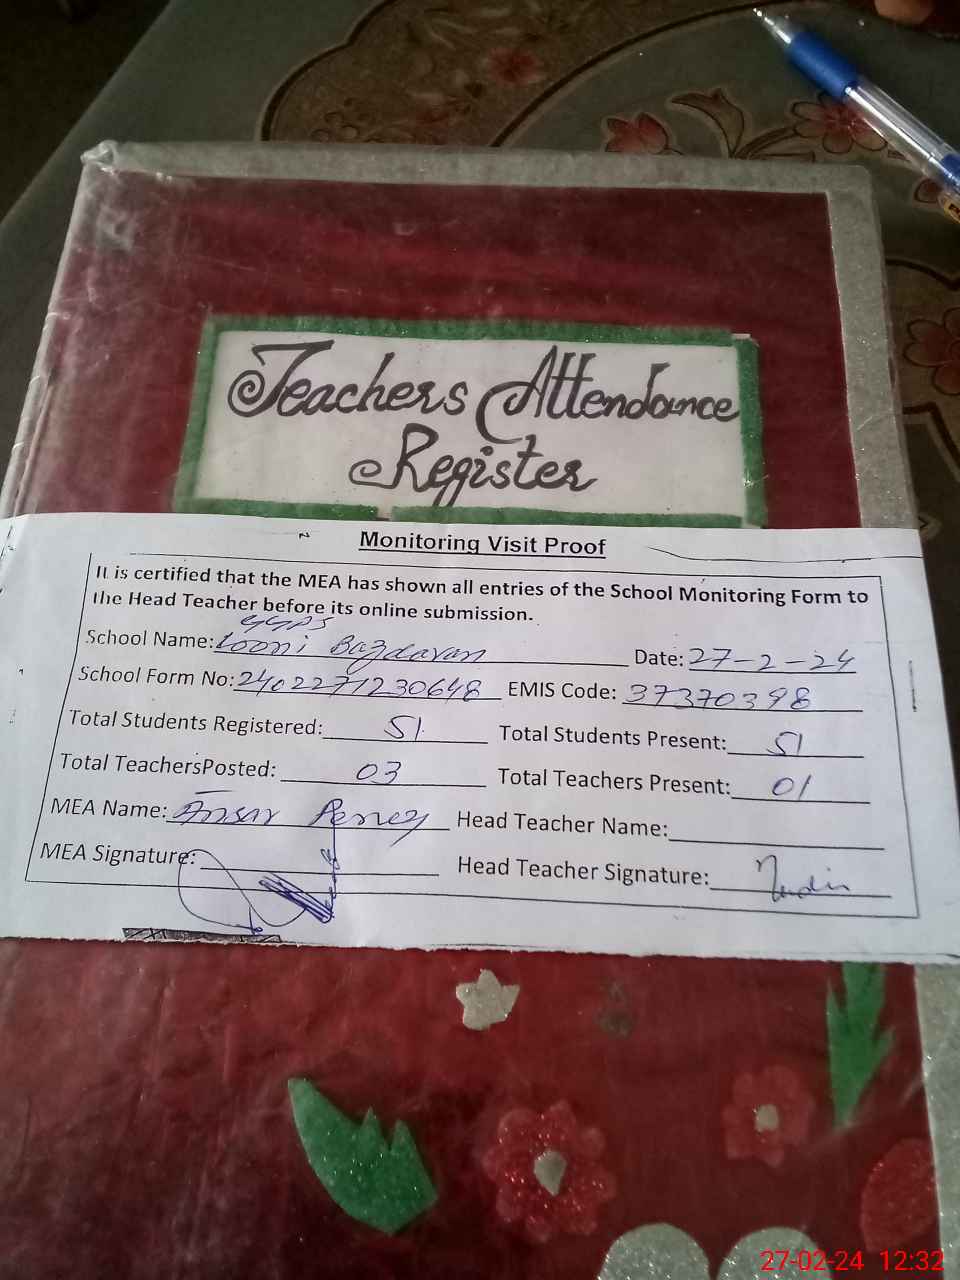 Teachers Attendance
Register
Monitoring Visit Proof
It is certified that the MEA has shown all entries of the School Monitoring Form to
the Head Teacher before its online submission.
GGPS
School Name: Looni Bazdaran Date: 27-2-24
School Form No: 2402271230648 EMIS Code: 37370398
Total Students Registered: 51 Total Students Present: 51
Total TeachersPosted: 03 Total Teachers Present: 01
MEA Name: Ansar Head Teacher Name:
MEA Signature: Head Teacher Signature:
27-02-24 12:32